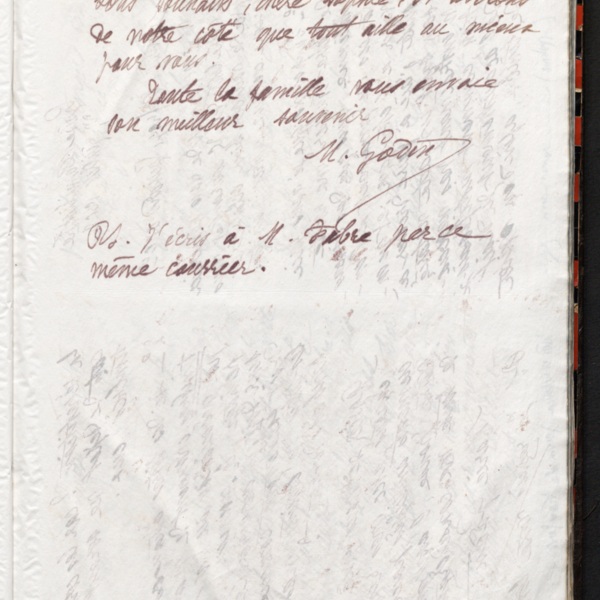 de notre côté que tout aille au mieux
pour vous.
Toute la famille vous envoie
son meilleur souvenir
M. Godin
Ps. J'écris à M. Fabre par ce
même courrier.